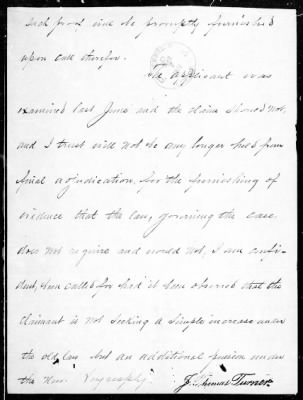 such proof will be promptly furnished
upon call therefor.
The applicant was
examined last June and the claim should not,
and I trust will not be any longer held from
final adjudication, for the furnishing of
evidence that the law, governing the case
does not require and would not, I am confi-
dent, been called for had it been observed that the
claimant is not seeking a simple increase under
the old law but an additional pension under
the new. Very resp'ly
J. Thomas Turner